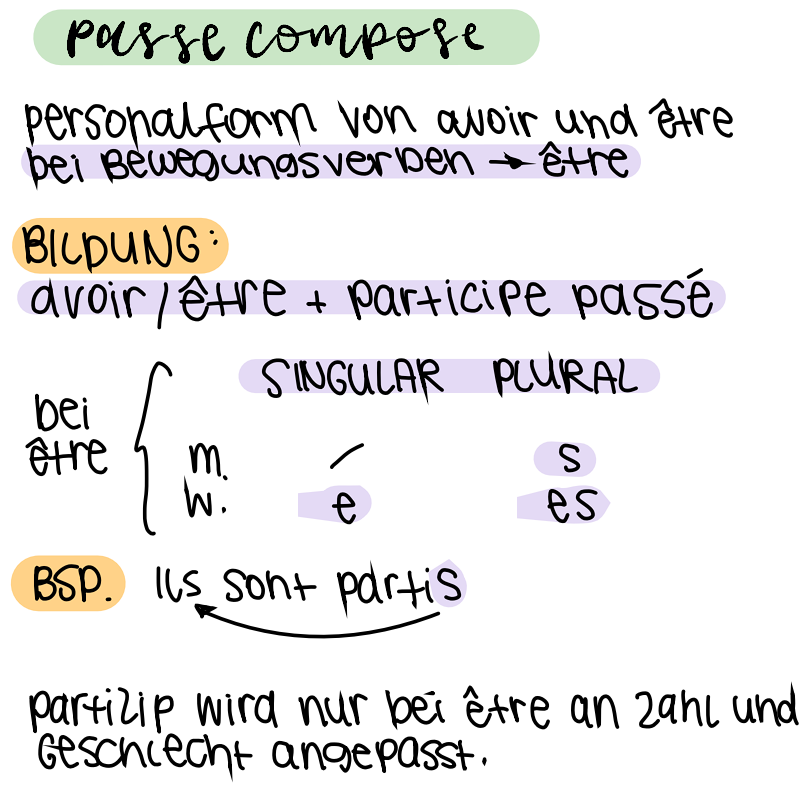 passe compose
personalform von avoir und être
bei Bewegungsverben → être
BILDUNG:
avoir/être + participe passé
SINGULAR PLURAL
bei
être
m. - s
w. e es
BSP. Ils sont partis
partizip wird nur bei être an zahl und
Geschlecht angepasst.